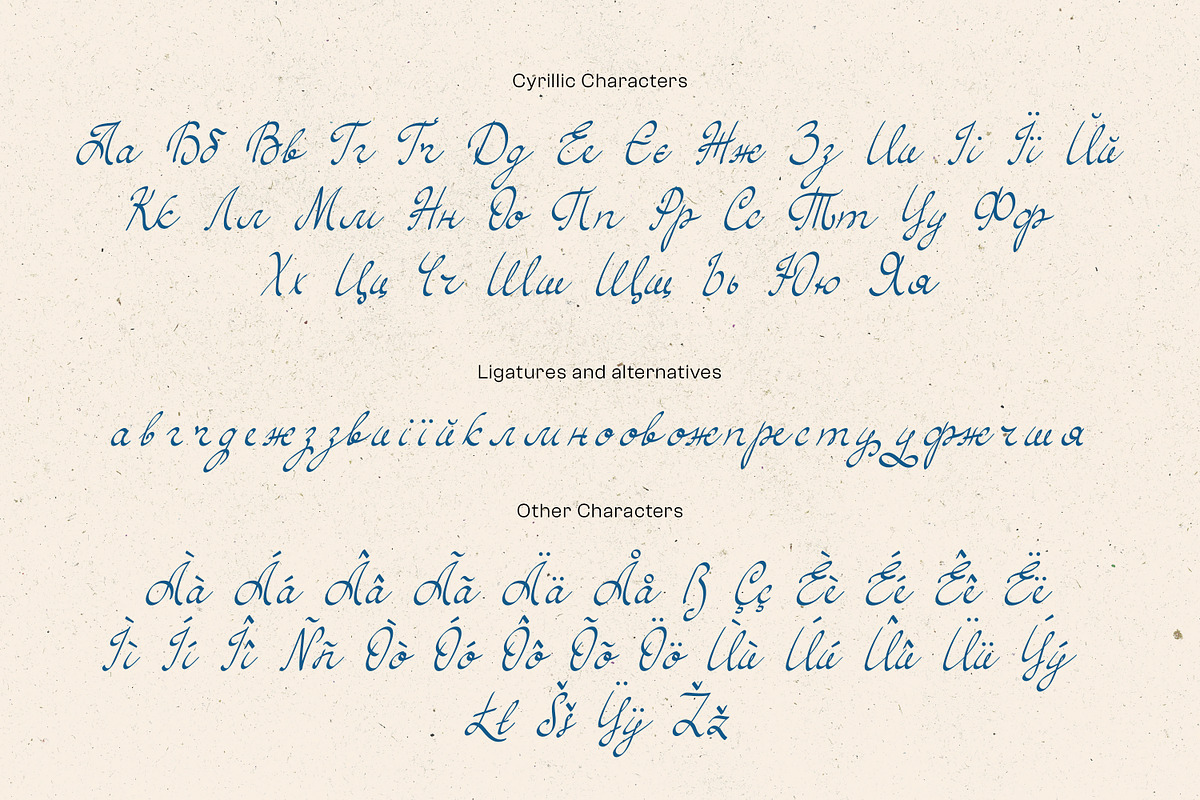 Cyrillic Characters
Аа Бб Вв Гг Ґґ Дд Ее Єє Жж Зз Ии Іі Її Йй
Кк Лл Мм Нн Оо Пп Рр Сс Тт Уу Фф
Хх Цц Чч Шш Щщ Ьь Юю Яя
Ligatures and alternatives
а в г ґ д е ж з зв и і ї й к л м н о ов ож п ре с т у у фж ч ш я
Other Characters
Àà Áá Ââ Ãã Ää Åå ß Çç Èè Éé Êê Ëë
Ìì Íí Îî Ññ Òò Óó Ôô Õõ Öö Ùù Úú Ûû Üü Ýý
Łł Šš Ÿÿ Žž